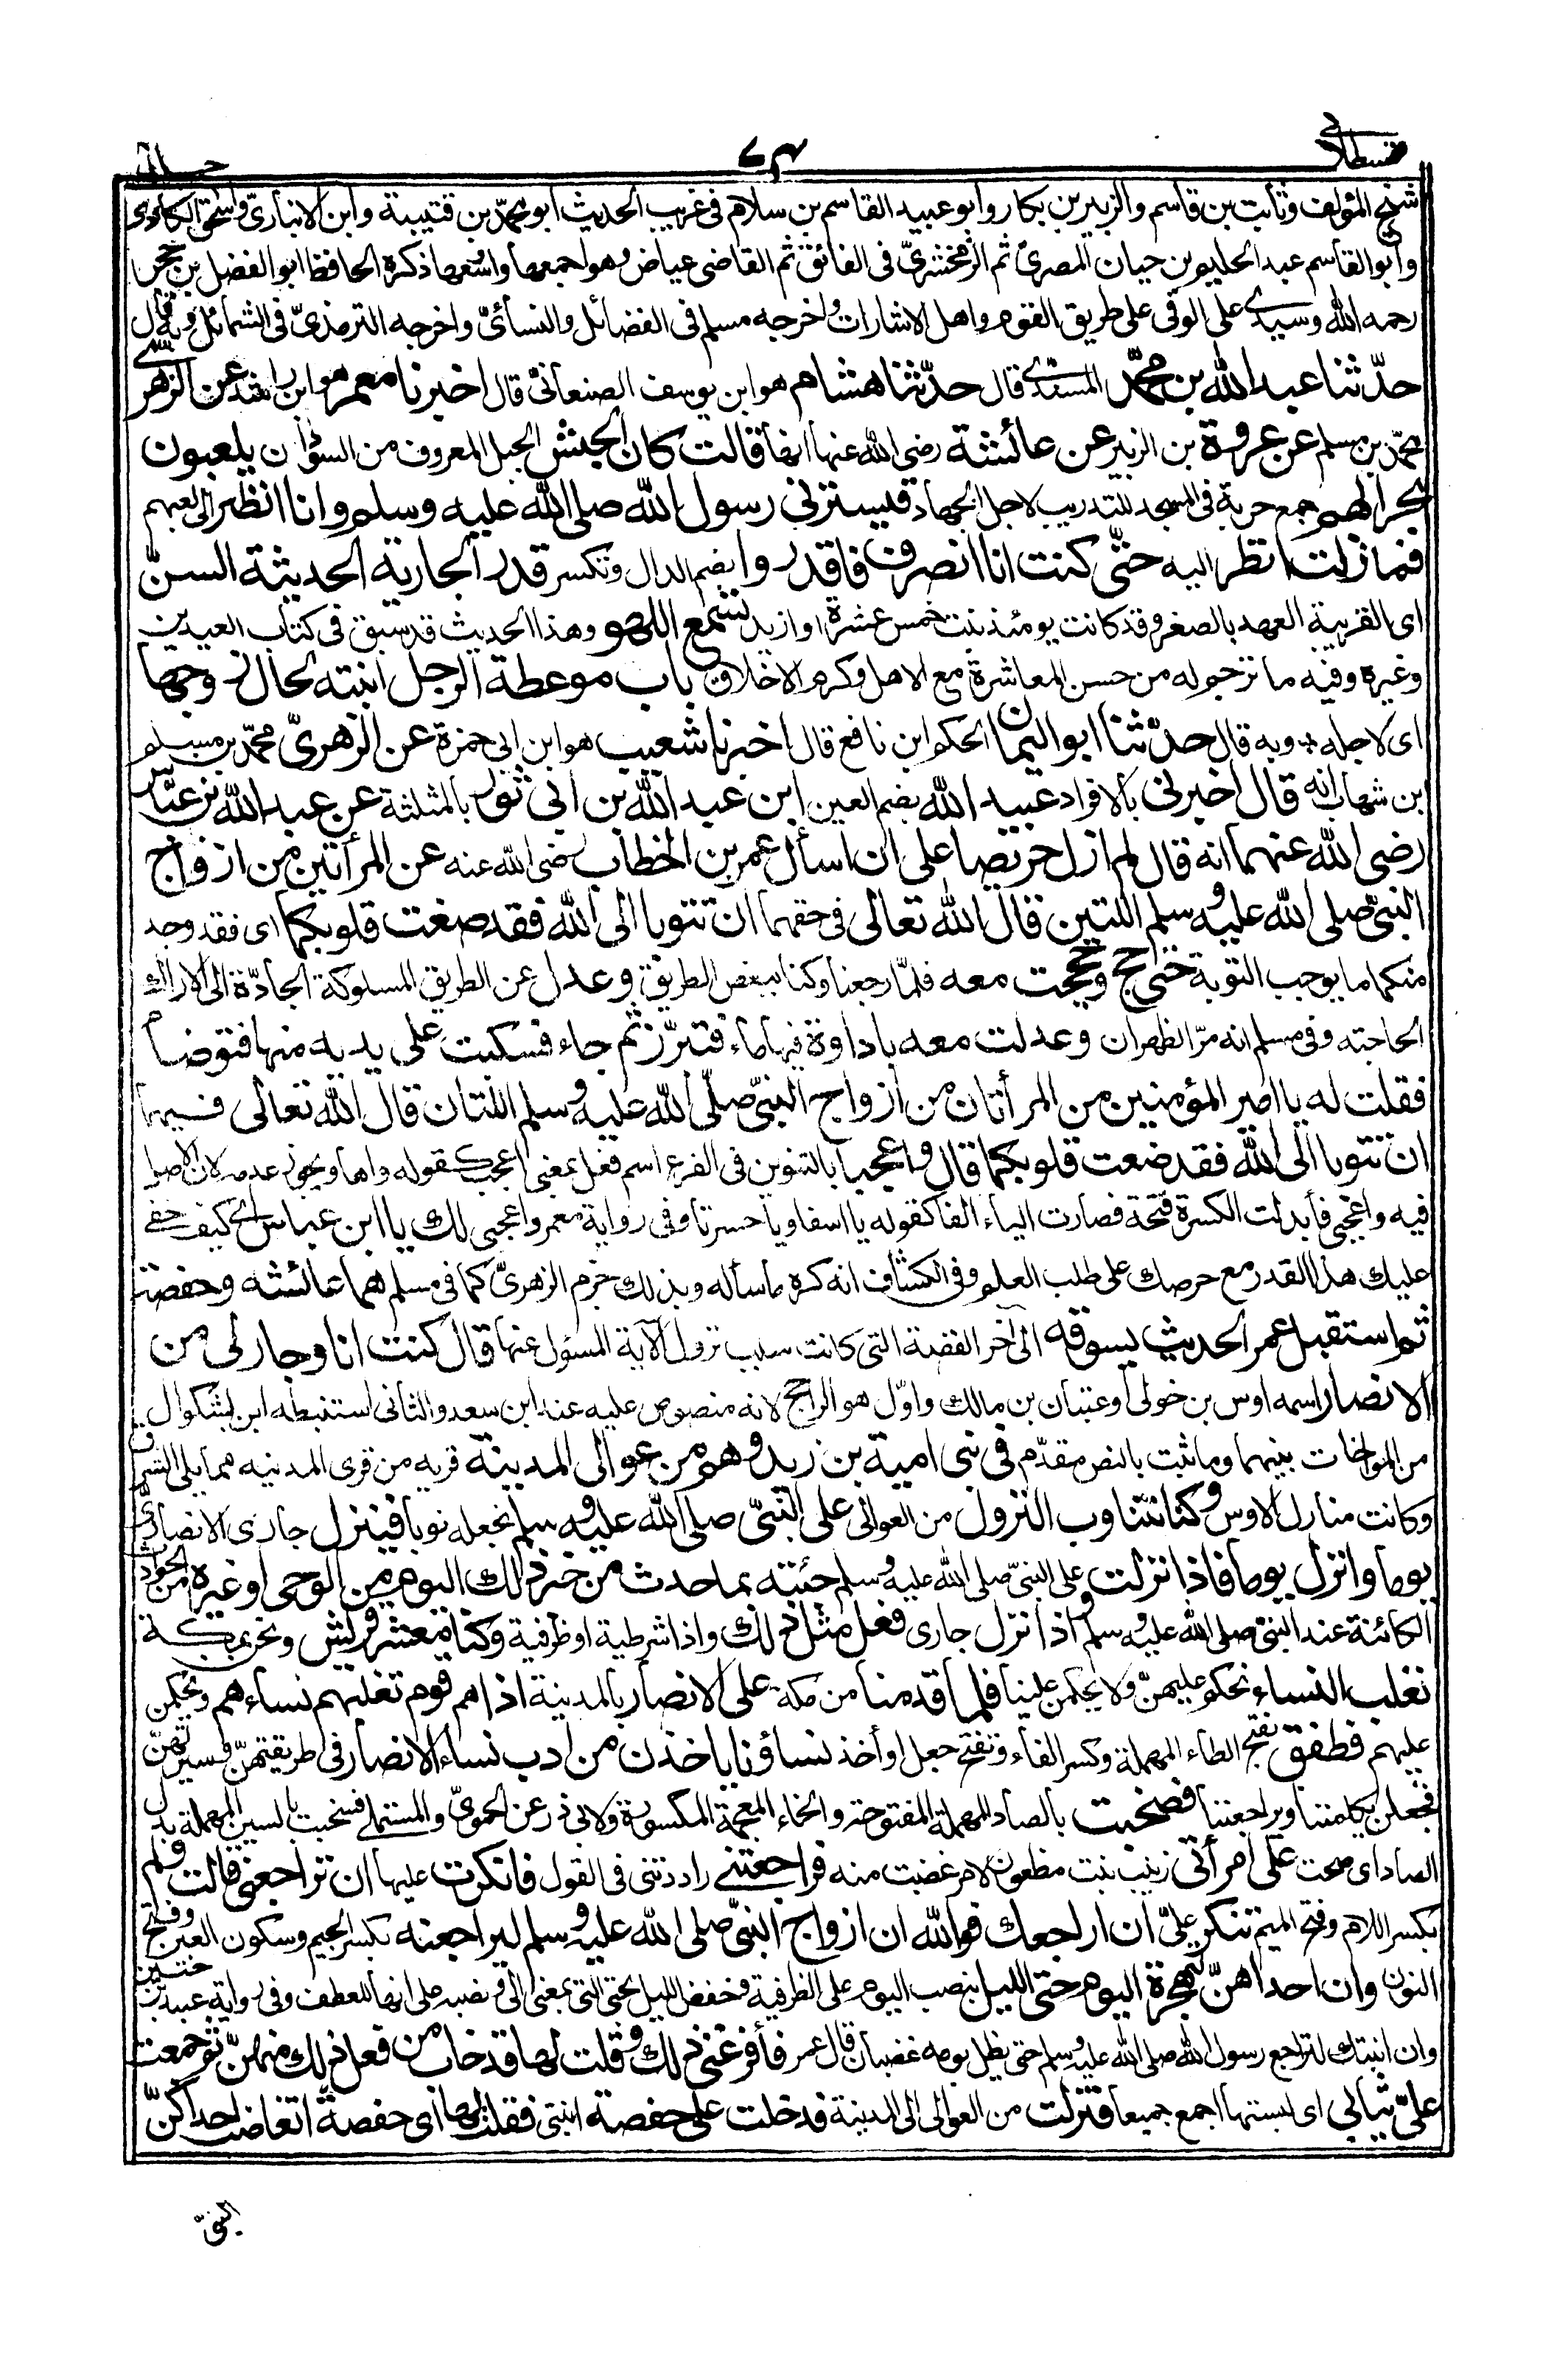 قسطلاني
شيخ المؤلف وثابت بن قاسم والزبير بن بكار وابو عبيد القاسم بن سلام فى غريب الحديث ابو محمّد بن قتيبة وابن الانبارىّ واسحق الكاذى
وابو القاسم عبد الحليم بن حيان المصرىّ ثم الزمخشرىّ فى الفائق ثم القاضى عياض وهو اجمعها واوسعها ذكره الحافظ ابو الفضل بن حجر
رحمه الله وسيدى على الوفى على طريق القوم واهل الاشارات واخرجه مسلم فى الفضائل والنسائىّ واخرجه الترمذىّ فى الشمائل وبه قال
حدّثنا عبد الله بن محمّد المسندى قال حدّثنا هشام هو ابن يوسف الصنعانىّ قال اخبرنا معمر هو ابن راشد عن الزهرىّ
محمّد بن مسلم عن عروة بن الزبير عن عائشة رضى الله عنها انها قالت كان الحبش الجبل المعروف من السودان يلعبون
بحرابهم جمع حربة فى المسجد للتدريب لاجل الجهاد فيسترنى رسول الله صلى الله عليه وسلم وانا انظر الى لعبهم
فما زلت انظر اليه حتّى كنت انا انصرف فاقدروا بضم الدال وتكسر قدر الجارية الحديثة السنّ
اى القريبة العهد بالصغر وقد كانت يومئذ بنت خمس عشرة او ازيد تسمع اللهو وهذا الحديث قد سبق فى كتاب العيدين
وغيره وفيه ما ترجم له من حسن المعاشرة مع الاهل وكرم الاخلاق باب موعظة الرجل ابنته لحال زوجها
اى لاجله * وبه قال حدّثنا ابو اليمان الحكم ابن نافع قال اخبرنا شعيب هو ابن ابى حمزة عن الزهرىّ محمّد بن مسلم
ابن شهاب انه قال اخبرنى بالافراد عبيد الله بضم العين ابن عبد الله بن ابى ثور بالمثلثة عن عبد الله بن عبّاس
رضى الله عنهما انه قال لم ازل حريصا على ان اسأل عمر بن الخطاب رضى الله عنه عن المرأتين من ازواج
النبىّ صلى الله عليه وسلم اللتين قال الله تعالى فى حقهما ان تتوبا الى الله فقد صغت قلوبكما اى فقد وجد
منكما ما يوجب التوبة حتى حج وحججت معه فلمّا رجعنا وكنا ببعض الطريق وعدل عن الطريق المسلوكة الجادّة الى الاراك
لحاجته وفى مسلم انه مرّ الظهران وعدلت معه باداوة فيها ماء فتبرّز ثم جاء فسكبت على يديه منها فتوضأ
فقلت له يا امير المؤمنين من المرأتان من ازواج النبىّ صلّى الله عليه وسلم اللتان قال الله تعالى فيهما
ان تتوبا الى الله فقد صغت قلوبكما قال واعجبا بالتنوين فى الفرع اسم فعل بمعنى اعجب كقوله واها ويجوز عدمه لان الاصل
فيه واعجبى فأبدلت الكسرة فتحة فصارت الياء الفا كقوله يا اسفا ويا حسرتا وفى رواية معمر واعجبى لك يا ابن عباس اى كيف خفى
عليك هذا القدر مع حرصك على طلب العلم وفى الكشاف انه كره ما سأله وبذلك جزم الزهرىّ كما فى مسلم هما عائشة وحفصة
ثم استقبل عمر الحديث يسوقه الى اخر القصة التى كانت سبب نزول الآية المسئول عنها قال كنت انا وجار لى من
الانصار اسمه اوس بن خولى او عتبان بن مالك واوّل هو الراجح لانه منصوص عليه عند ابن سعد والثانى استنبطه ابن بشكوال
من المواخات بينهما وما ثبت بالنص مقدّم فى بنى امية بن زيد وهم من عوالى المدينة قرية من قرى المدينه مما يلى الشرق
وكانت منازل الاوس وكنا نتناوب النزول من العوالى على النبىّ صلى الله عليه وسلم نجعله نوبا فينزل جارى الانصارىّ
يوما وانزل يوما فاذا نزلت على النبىّ صلى الله عليه وسلم جئته بما حدث من خبر ذلك اليوم من الوحى او غيره من الحوادث
الكائنة عند النبىّ صلى الله عليه وسلم واذا نزل جارى فعل مثل ذلك واذا شرطية او ظرفية وكنا معشر قريش ونحن بمكة
نغلب النساء نحكم عليهنّ ولا يحكمن علينا فلما قدمنا من مكة على الانصار بالمدينة اذا هم قوم تغلبهم نساءهم ويحكمن
عليهم فطفق بفتح الطاء المهملة وكسر الفاء وتفتح جعل او أخذ نساؤنا ياخذن من ادب نساء الانصار فى طريقتهنّ وسيرتهنّ
فجعلن يكلمننا ويراجعننا فصخبت بالصاد المهملة المفتوحة والخاء المعجمة المكسورة ولابى ذر عن الحموىّ والمستملى فسخبت بالسين المهملة بدل
الصاد اى صحت على امرأتى زينب بنت مظعون لامر غضبت منه فراجعتنى راددتنى فى القول فانكرت عليها ان تراجعنى قالت ولم
بكسر اللام وفتح الميم تنكر علىّ ان اراجعك فوالله ان ازواج النبىّ صلى الله عليه وسلم ليراجعنه بكسر الجيم وسكون العين وفتح
النون وان احداهنّ لتهجره اليوم حتى الليل بنصب اليوم على الظرفية وخفض الليل بحتى التى بمعنى الى ونصبه على انها للعطف وفى رواية عبيد بن حنين
وان ابنتك لتراجع رسول الله صلى الله عليه وسلم حتى يظل يومه غضبان قال عمر فأفزعنى ذلك وقلت لها قد خاب من فعل ذلك منهنّ ثم جمعت
علىّ ثيابى اى لبستها اجمع جميعا فنزلت من العوالى الى المدينة فدخلت على حفصة ابنتى فقلت لها اى حفصة أتغاضب احداكنّ
النبىّ